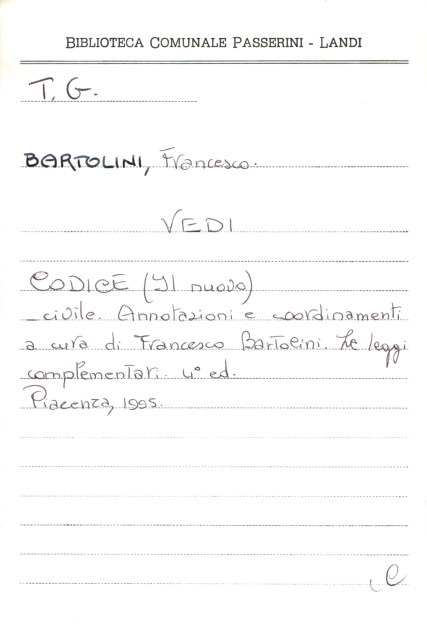 BIBLIOTECA COMUNALE PASSERINI - LANDI
T. G.
BARTOLINI, Francesco.
VEDI
CODICE (Il nuovo)
_civile. Annotazioni e coordinamenti
a cura di Francesco Bartolini. Le leggi
complementari. 4° ed.
Piacenza, 1995.
C